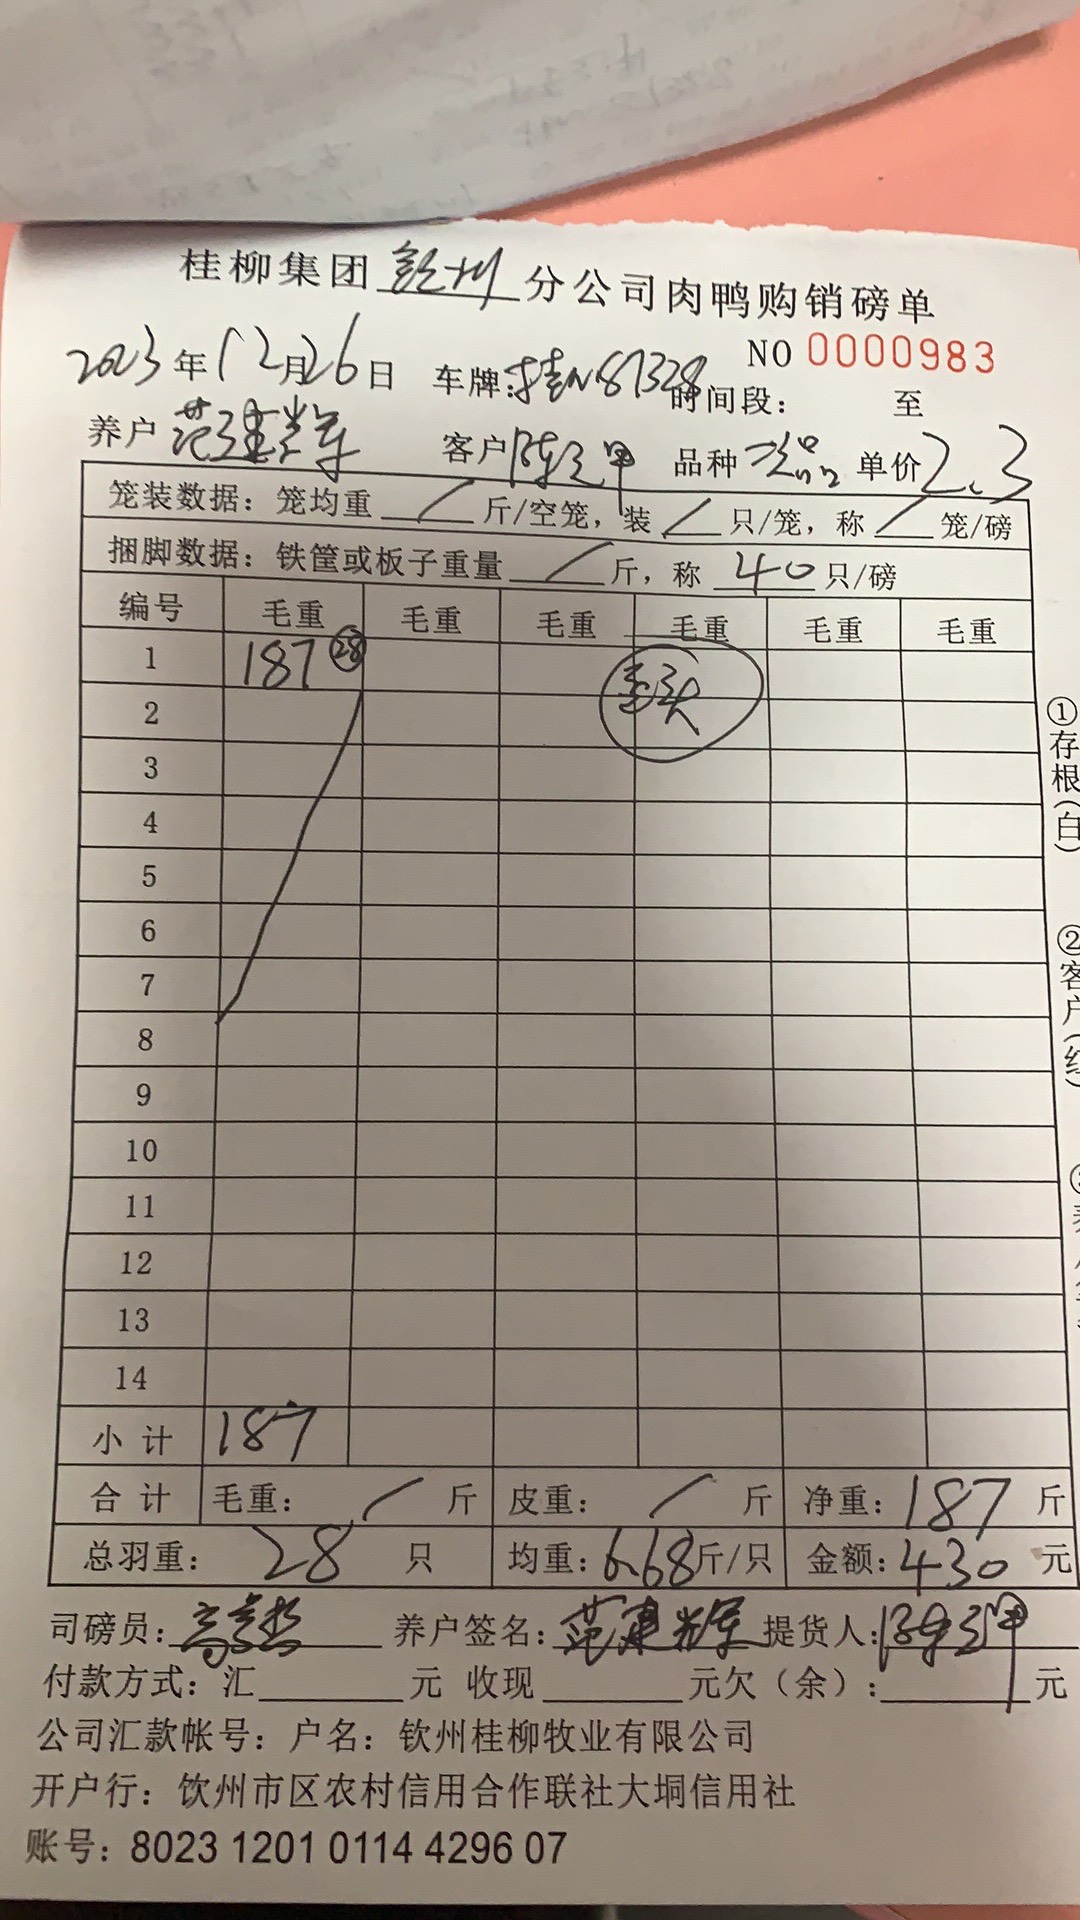 桂柳集团钦州分公司肉鸭购销磅单
NO 0000983
2023年12月26日 车牌:桂N·87328 时间段: 至
养户 范建辉 客户 陈 品种 次品 单价 2.3
笼装数据: 笼均重 / 斤/空笼, 装 / 只/笼, 称 / 笼/磅
捆脚数据: 铁筐或板子重量 / 斤, 称 40 只/磅
编号 毛重 毛重 毛重 毛重 毛重 毛重
1 187 28
2
3
4
5
6
7
8
9
10
11
12
13
14
小计 187
合计 毛重: / 斤 皮重: / 斤 净重: 187 斤
总羽重: 28 只 均重: 6.68斤/只 金额: 430 元
司磅员: 养户签名: 范建辉 提货人: 陈
付款方式: 汇 元 收现 元欠(余): 元
公司汇款帐号: 户名: 钦州桂柳牧业有限公司
开户行: 钦州市区农村信用合作联社大垌信用社
账号: 8023 1201 0114 4296 07
①存根(白)
②客户(红)